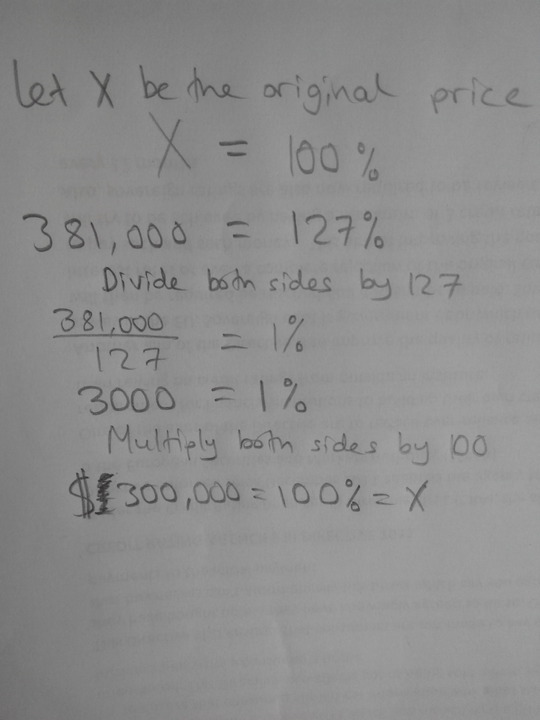 Let X be the original price
X = 100%
381,000 = 127%
Divide both sides by 127
381,000
127
= 1%
3000 = 1%
Multiply both sides by 100
$ 300,000 = 100% = X